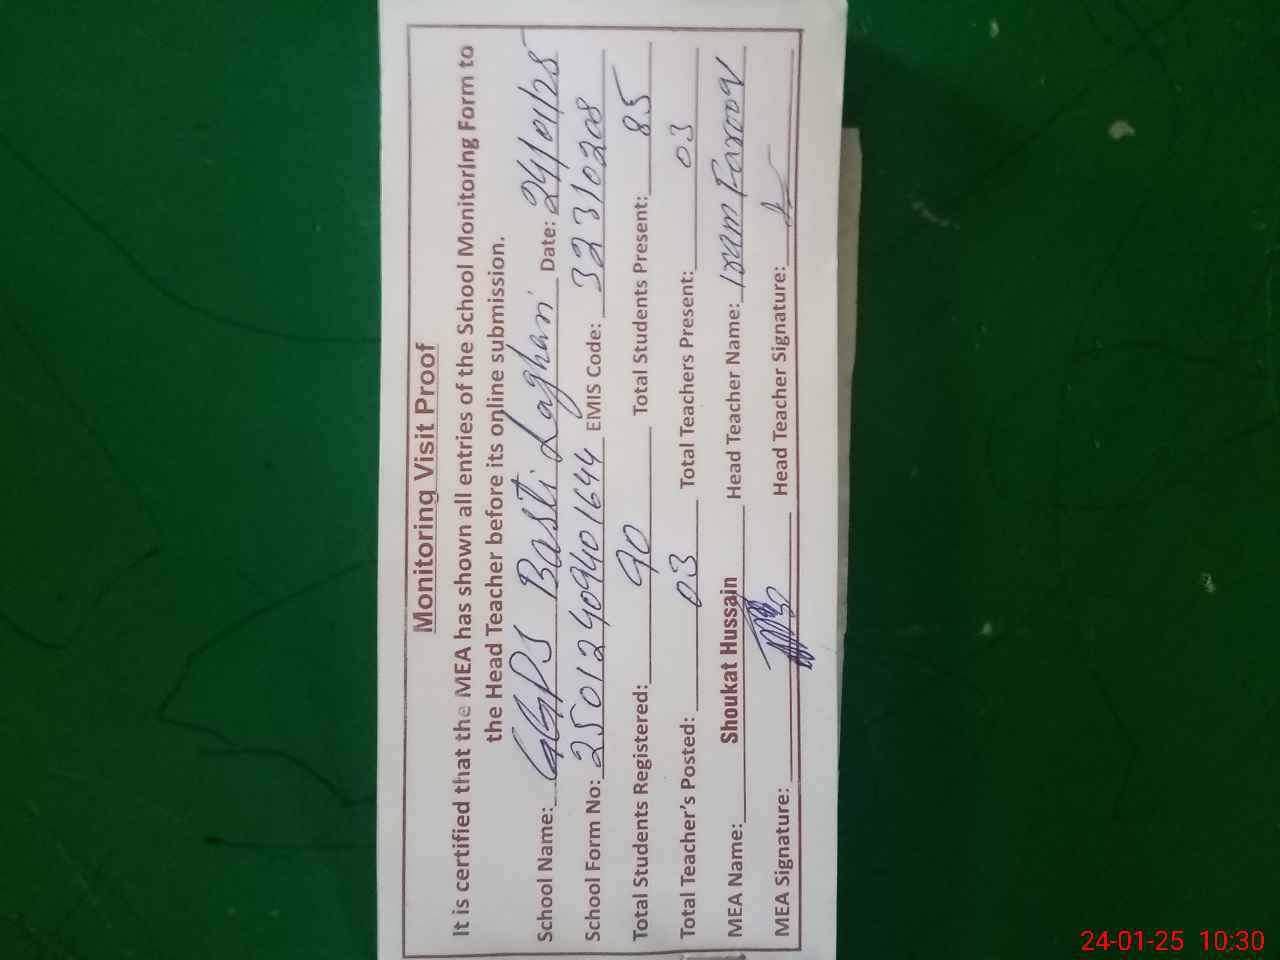 Monitoring Visit Proof
It is certified that the MEA has shown all entries of the School Monitoring Form to
the Head Teacher before its online submission.
School Name: GGPS Basti Laghari Date: 24/01/25
School Form No: 25012409401644 EMIS Code: 32310208
Total Students Registered: 90 Total Students Present: 85
Total Teacher's Posted: 03 Total Teachers Present: 03
MEA Name: Shoukat Hussain Head Teacher Name: Iram Farooq
MEA Signature: Head Teacher Signature:
24-01-25 10:30